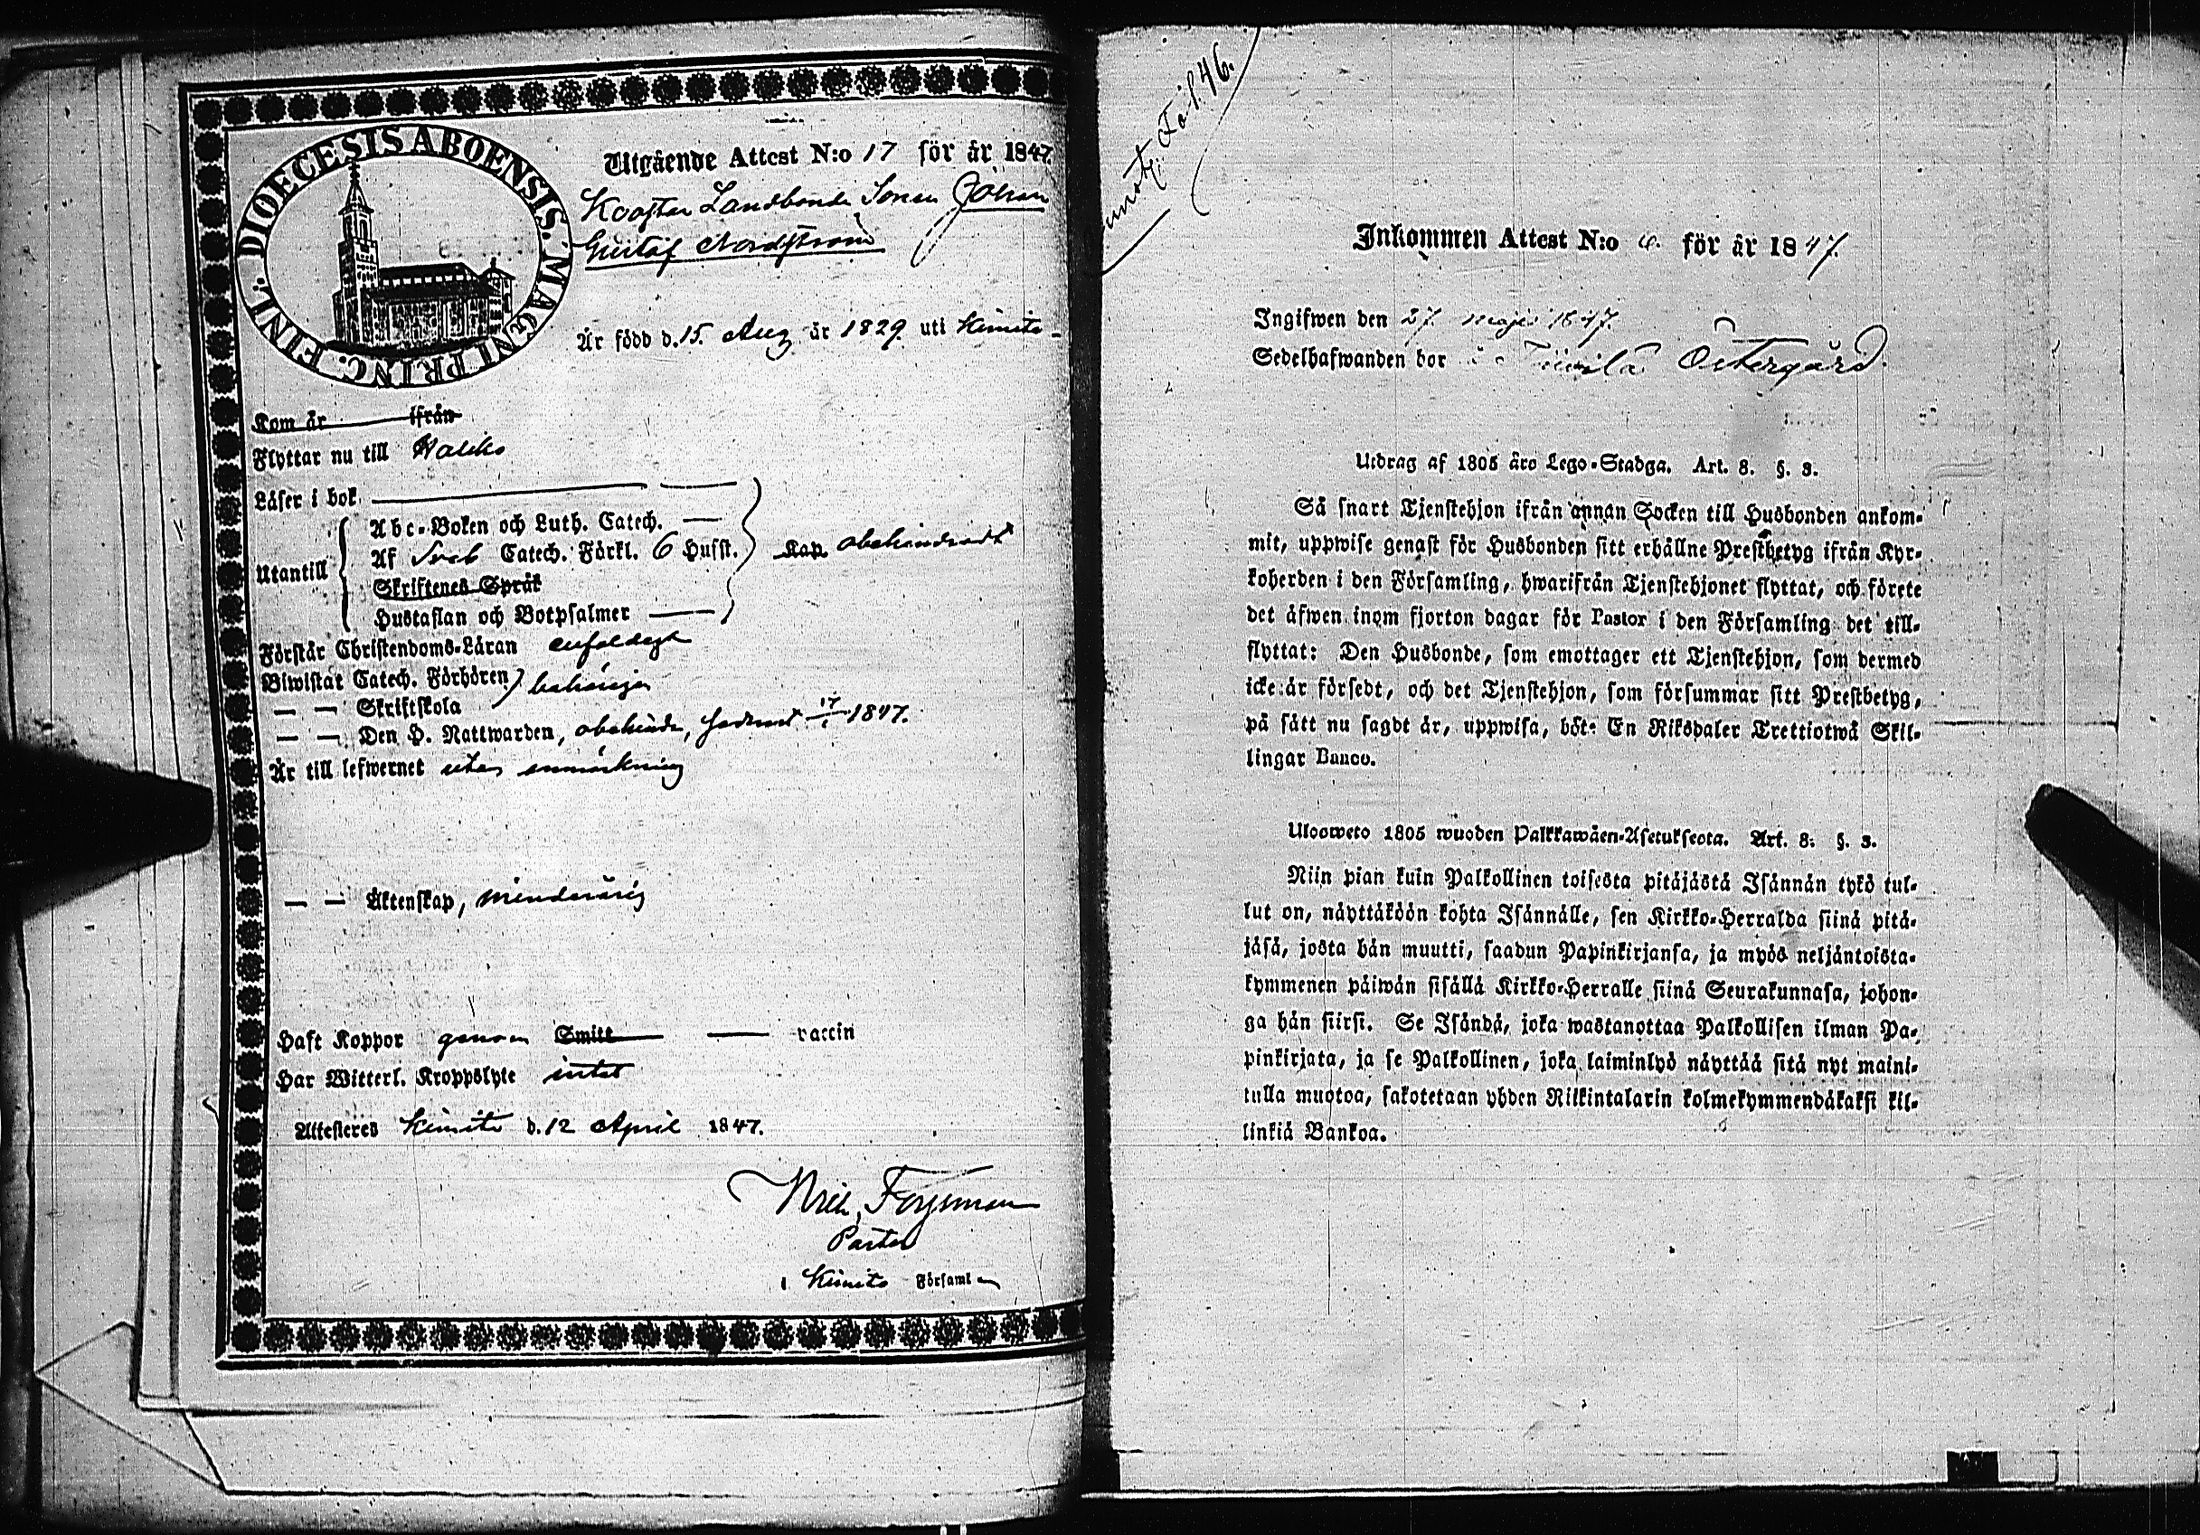 DIOECESIS ABOENSIS. MAGNI PRINC. FINL.
Utgående Attest N:o 17 för år 1847.
Landbonde Sonen Johan
Gustaf Nordström
Är född d. 15. Aug. år 1829. uti Kimito
Kom år ifrån
Flyttar nu till Halikko
Läser i bok.
Utantill
Abc-Boken och Luth. Catech.
Af Sveb Catech. Förkl. 6 Hufst.
Kan obehindradt
Skriftenes Språk
Hustaflan och Botpsalmer
Förstår Christendoms-Läran enfaldigt
Biwistat Catech. Förhören
behörigen
— — Skriftskola
— — Den H. Nattwarden, obehindr, sednast 17/1 1847.
Är till lefwernet utan anmärkning
— — Äktenskap, minderårig
Haft Koppor genom Smitt vaccin
Har Witterl. Kroppslyte intet
Attesteras Kimito d. 12 April 1847.
Forssman
Pastor
i Kimito Församl
Fol. 46.
Inkommen Attest N:o 6. för år 1847.
Ingifwen den 27. Maji 1847.
Sedelhafwanden bor Östergård.
Utdrag af 1805 års Lego-Stadga. Art. 8. §. 3.
Så snart Tjenstehjon ifrån annan Socken till Husbonden ankom-
mit, uppwise genast för Husbonden sitt erhållne Prestbetyg ifrån Kyr-
koherden i den Församling, hwarifrån Tjenstehjonet flyttat, och förete
det äfwen inom fjorton dagar för Pastor i den Församling det till-
flyttat: Den Husbonde, som emottager ett Tjenstehjon, som dermed
icke är försedt, och det Tjenstehjon, som försummar sitt Prestbetyg,
på sätt nu sagdt är, uppwisa, böte En Riksdaler Trettiotwå Skil-
lingar Banco.
Ulosweto 1805 wuoden Palkkawäen-Asetuksesta. Art. 8. §. 3.
Niin pian kuin Palkollinen toisesta pitäjästä Isännän tykö tul-
lut on, näyttäköön kohta Isännälle, sen Kirkko-Herralda siinä pitä-
jäsä, josta hän muutti, saadun Papinkirjansa, ja myös neljäntoista-
kymmenen päiwän sisällä Kirkko-Herralle siinä Seurakunnasa, johon-
ga hän siirsi. Se Isändä, joka wastanottaa Palkollisen ilman Pa-
pinkirjata, ja se Palkollinen, joka laiminlyö näyttää sitä nyt maini-
tulla muotoa, sakotetaan yhden Riikintalarin kolmekymmendäkaksi kil-
linkiä Bankoa.